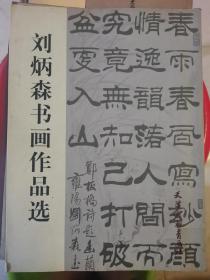 刘炳森书画作品选
春雨春風寫妙顏
情逸韻落人間而
究竟無知己打破
盆更入山
鄭板橋詩題畫蘭